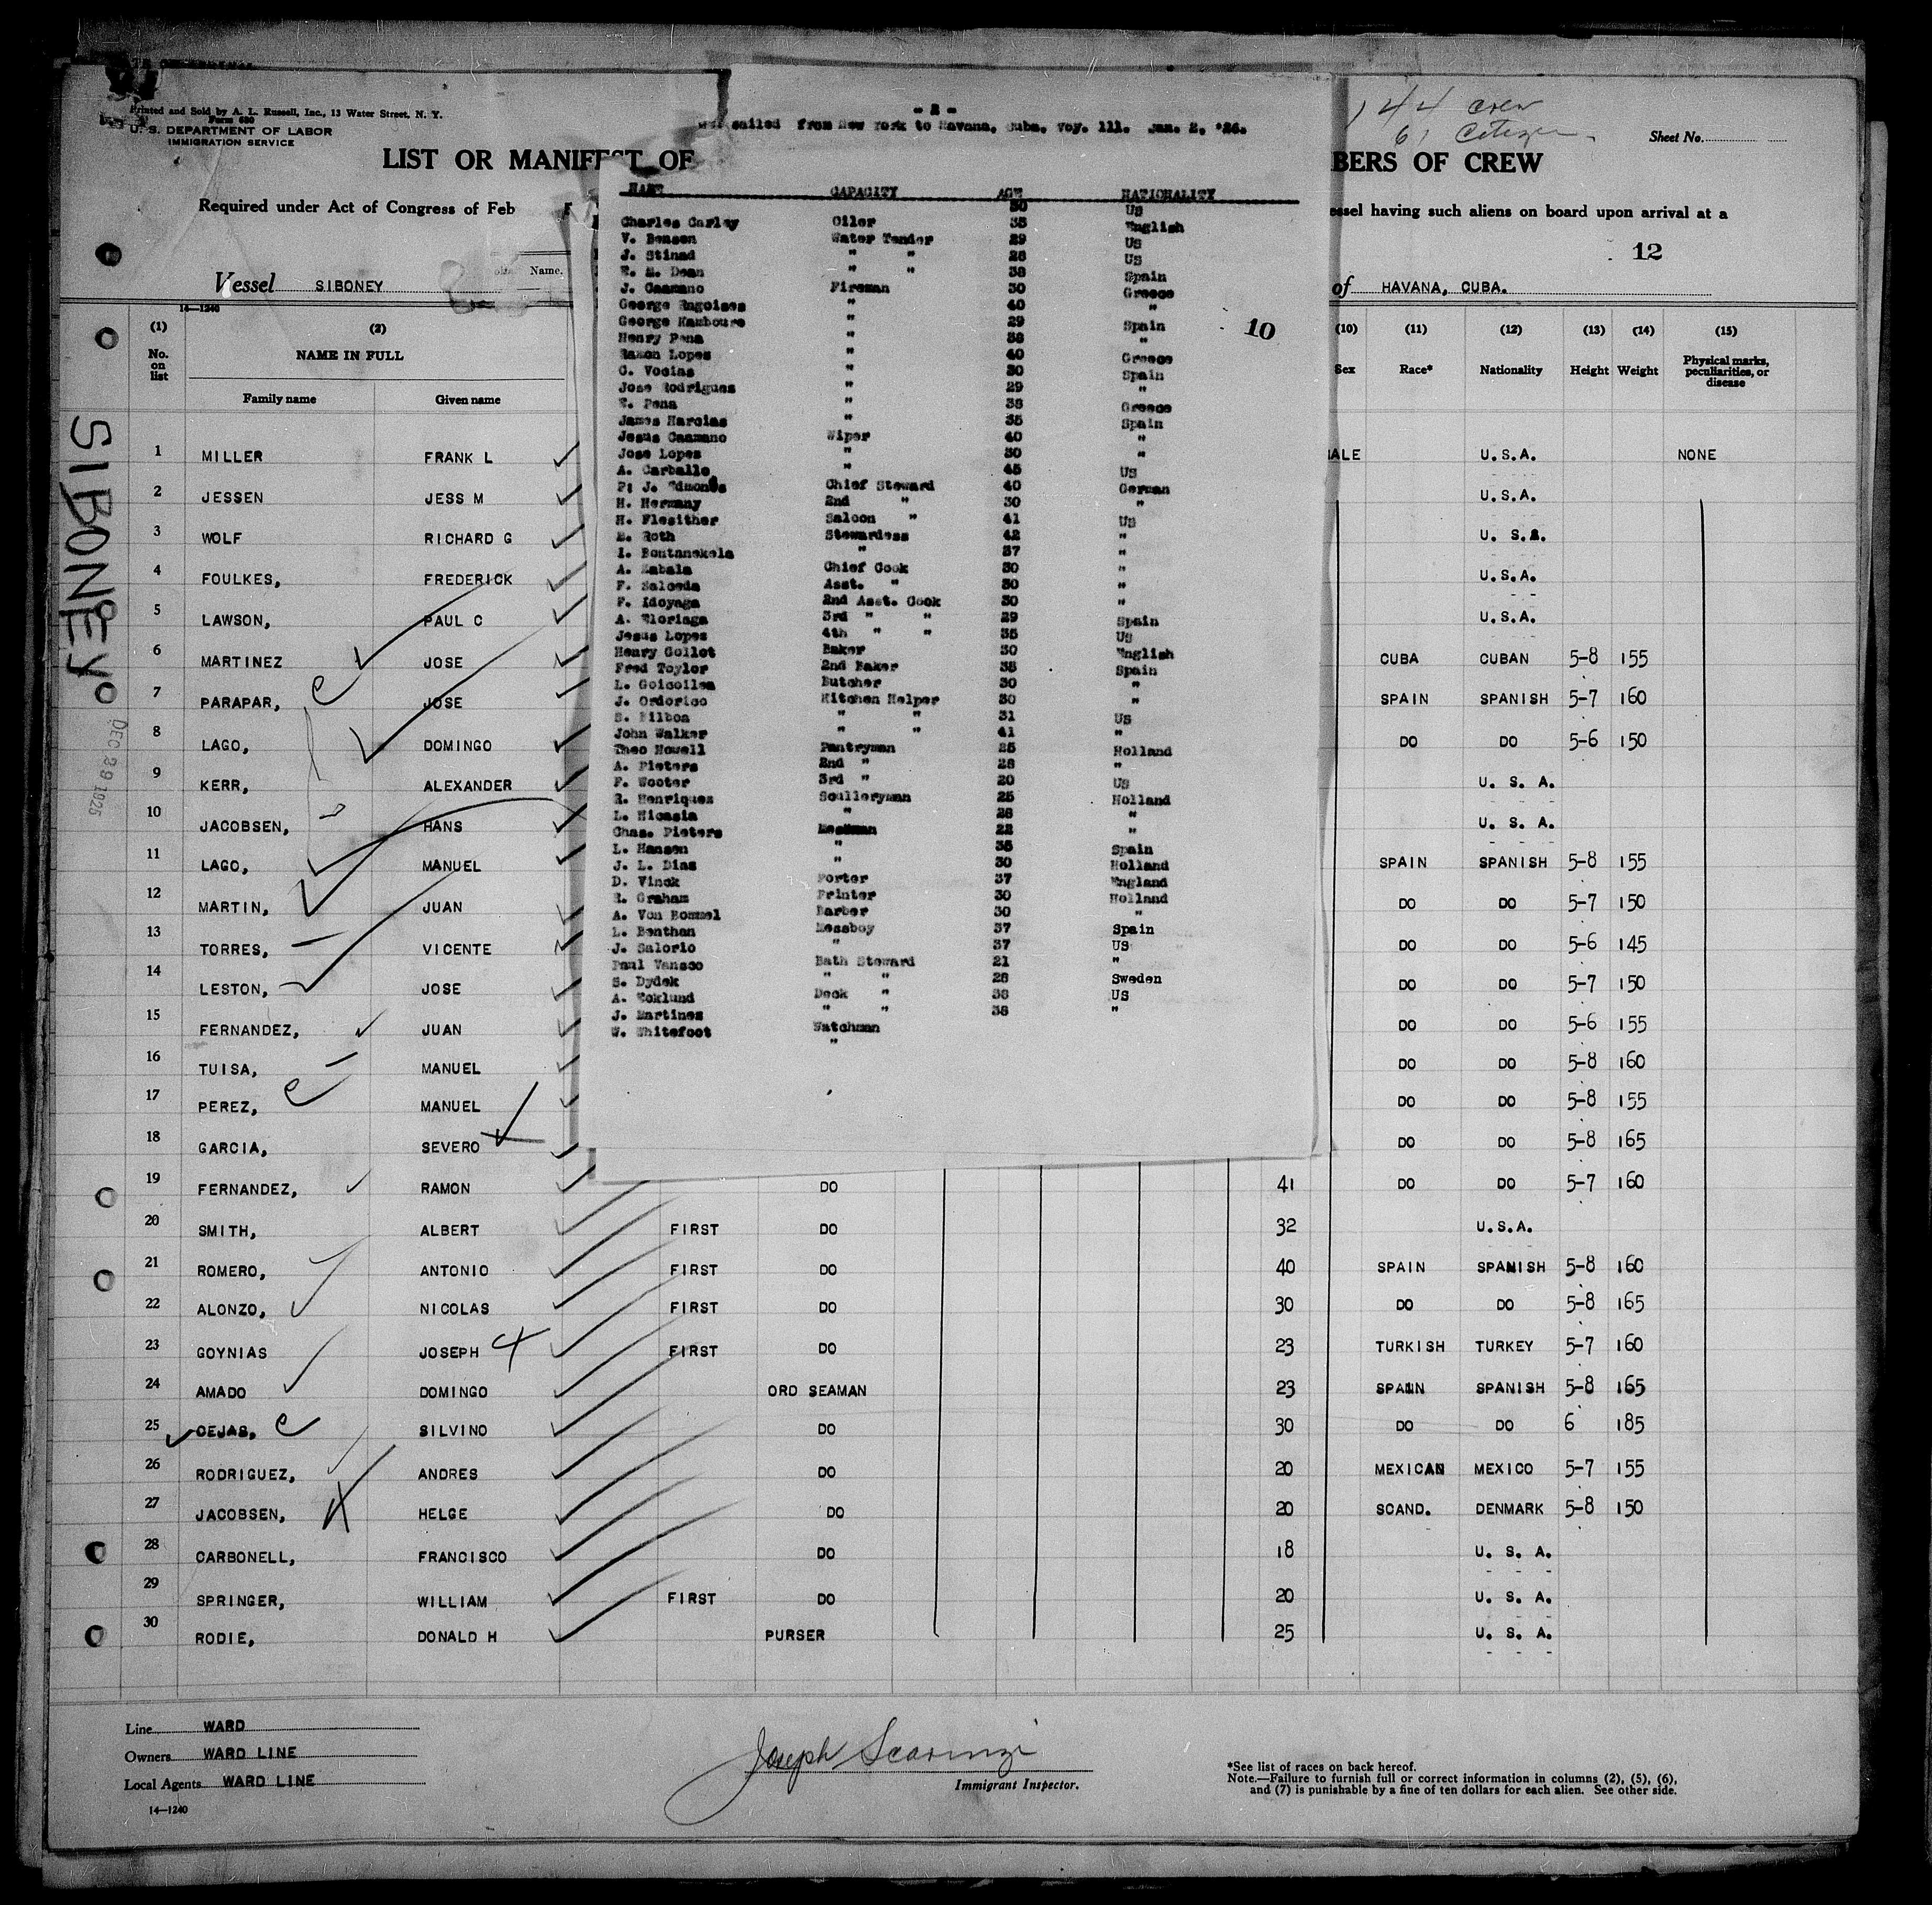 Printed and Sold by A. L. Russell, Inc., 13 Water Street, N. Y.
Form 680
U. S. DEPARTMENT OF LABOR
IMMIGRATION SERVICE
LIST OR MANIFEST OF
BERS OF CREW
144 crew
61 Citizen
Sheet No.
Required under Act of Congress of Feb
essel having such aliens on board upon arrival at a
12
Vessel SIBONEY
Name.
of HAVANA, CUBA.
14—1240
- 2 -
sailed from New York to Havana, Cuba, Voy. 111. Jan. 2, '26.
NAME CAPACITY AGE NATIONALITY
30 US
Charles Carley Oiler 35 English
V. Bensen Water Tender 29 US
J. Stinad " " 28 US
E. M. Dean " " 38 Spain
J. Caamano Fireman 30 Greece
George Rugoises " 40 "
George Kamboure " 29 Spain
Henry Pena " 38 "
Ramon Lopes " 40 Greece
C. Vocias " 30 Spain
Jose Rodrigues " 29 "
E. Pena " 38 Greece
James Harcias " 35 Spain
Jesus Caamano Wiper 40 "
Jose Lopes " 30 "
A. Carballo " 45 US
P: J. Edmonds Chief Steward 40 German
H. Hermany 2nd " 30 "
H. Flesither Saloon " 41 US
E. Roth Stewardess 42 "
I. Bontanekela " 37 "
A. Zabala Chief Cook 30 "
F. Salceda Asst. " 30 "
F. Idoyaga 2nd Asst. Cook 30 "
A. Eloriaga 3rd " " 29 Spain
Jesus Lopes 4th " " 35 US
Henry Gollot Baker 30 English
Fred Toylor 2nd Baker 35 Spain
L. Goicoilea Butcher 30 "
J. Ordorico Kitchen Helper 30 "
S. Bilboa " " 31 US
John Walker " " 41 "
Theo Howell Pantryman 25 Holland
A. Pieters 2nd " 28 "
F. Wooter 3rd " 20 US
R. Henriques Sculleryman 25 Holland
L. Nicasia " 28 "
Chas. Pieters Messman 22 "
L. Hansen " 35 Spain
J. L. Dias " 30 Holland
D. Vinck Porter 37 England
R. Graham Printer 30 Holland
A. Von Bommel Barber 30 "
L. Benthan Messboy 37 Spain
J. Salorio " 37 US
Paul Vansco Bath Steward 21 "
S. Dydek " " 28 Sweden
A. Eoklund Deck " 38 US
J. Martines " " 38 "
W. Whitefoot Watchman
"
10
(1) (2) (10) (11) (12) (13) (14) (15)
No. on list NAME IN FULL Sex Race* Nationality Height Weight Physical marks, peculiarities, or disease
Family name Given name
SIBONEY
DEC 29 1925
1 MILLER FRANK L ALE U.S.A. NONE
2 JESSEN JESS M U.S.A.
3 WOLF RICHARD G U. S.A.
4 FOULKES, FREDERICK U.S.A.
5 LAWSON, PAUL C U.S.A.
6 MARTINEZ JOSE CUBA CUBAN 5-8 155
7 PARAPAR, JOSE SPAIN SPANISH 5-7 160
8 LAGO, DOMINGO DO DO 5-6 150
9 KERR, ALEXANDER U. S. A.
10 JACOBSEN, HANS U. S. A.
11 LAGO, MANUEL SPAIN SPANISH 5-8 155
12 MARTIN, JUAN DO DO 5-7 150
13 TORRES, VICENTE DO DO 5-6 145
14 LESTON, JOSE DO DO 5-7 150
15 FERNANDEZ, JUAN DO DO 5-6 155
16 TUISA, MANUEL DO DO 5-8 160
17 PEREZ, MANUEL DO DO 5-8 155
18 GARCIA, SEVERO DO DO 5-8 165
19 FERNANDEZ, RAMON DO 41 DO DO 5-7 160
20 SMITH, ALBERT FIRST DO 32 U.S.A.
21 ROMERO, ANTONIO FIRST DO 40 SPAIN SPANISH 5-8 160
22 ALONZO, NICOLAS FIRST DO 30 DO DO 5-8 165
23 GOYNIAS JOSEPH FIRST DO 23 TURKISH TURKEY 5-7 160
24 AMADO DOMINGO ORD SEAMAN 23 SPAIN SPANISH 5-8 165
25 CEJAS, SILVINO DO 30 DO DO 6 185
26 RODRIGUEZ, ANDRES DO 20 MEXICAN MEXICO 5-7 155
27 JACOBSEN, HELGE DO 20 SCAND. DENMARK 5-8 150
28 CARBONELL, FRANCISCO DO 18 U. S. A.
29 SPRINGER, WILLIAM FIRST DO 20 U. S. A.
30 RODIE, DONALD H PURSER 25 U. S. A.
Line WARD
Owners WARD LINE
Local Agents WARD LINE
14—1240
Joseph Scarinzi
Immigrant Inspector.
*See list of races on back hereof.
Note.—Failure to furnish full or correct information in columns (2), (5), (6),
and (7) is punishable by a fine of ten dollars for each alien. See other side.